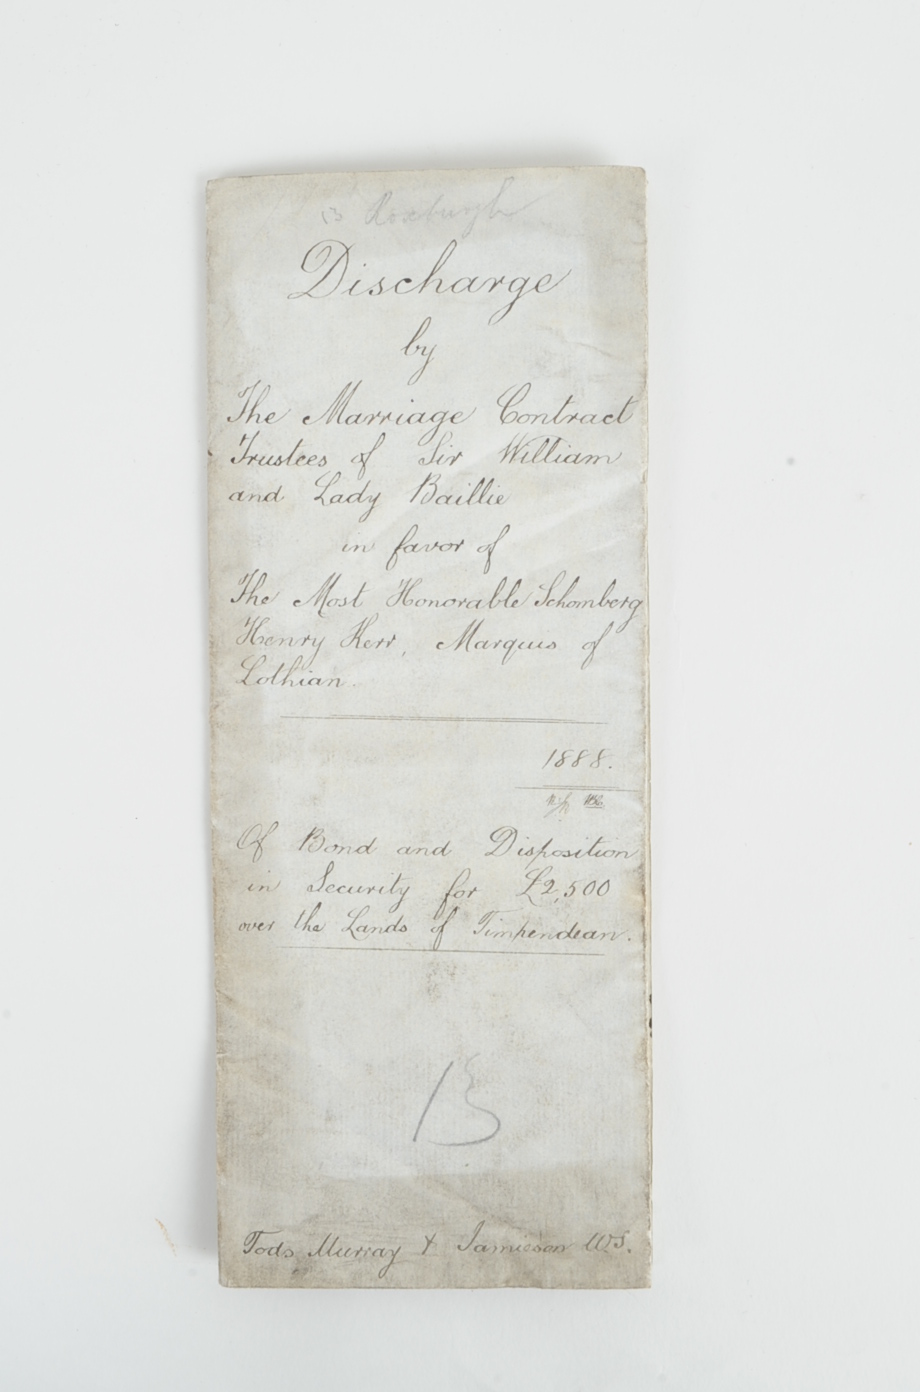 13 Roxburgh
Discharge
by
The Marriage Contract
Trustees of Sir William
and Lady Baillie
in favor of
The Most Honorable Schomberg
Henry Kerr, Marquis of
Lothian.
1888.
Of Bond and Disposition
in Security for £2,500
over the Lands of Timpendean.
13
Tods Murray & Jamieson WS.